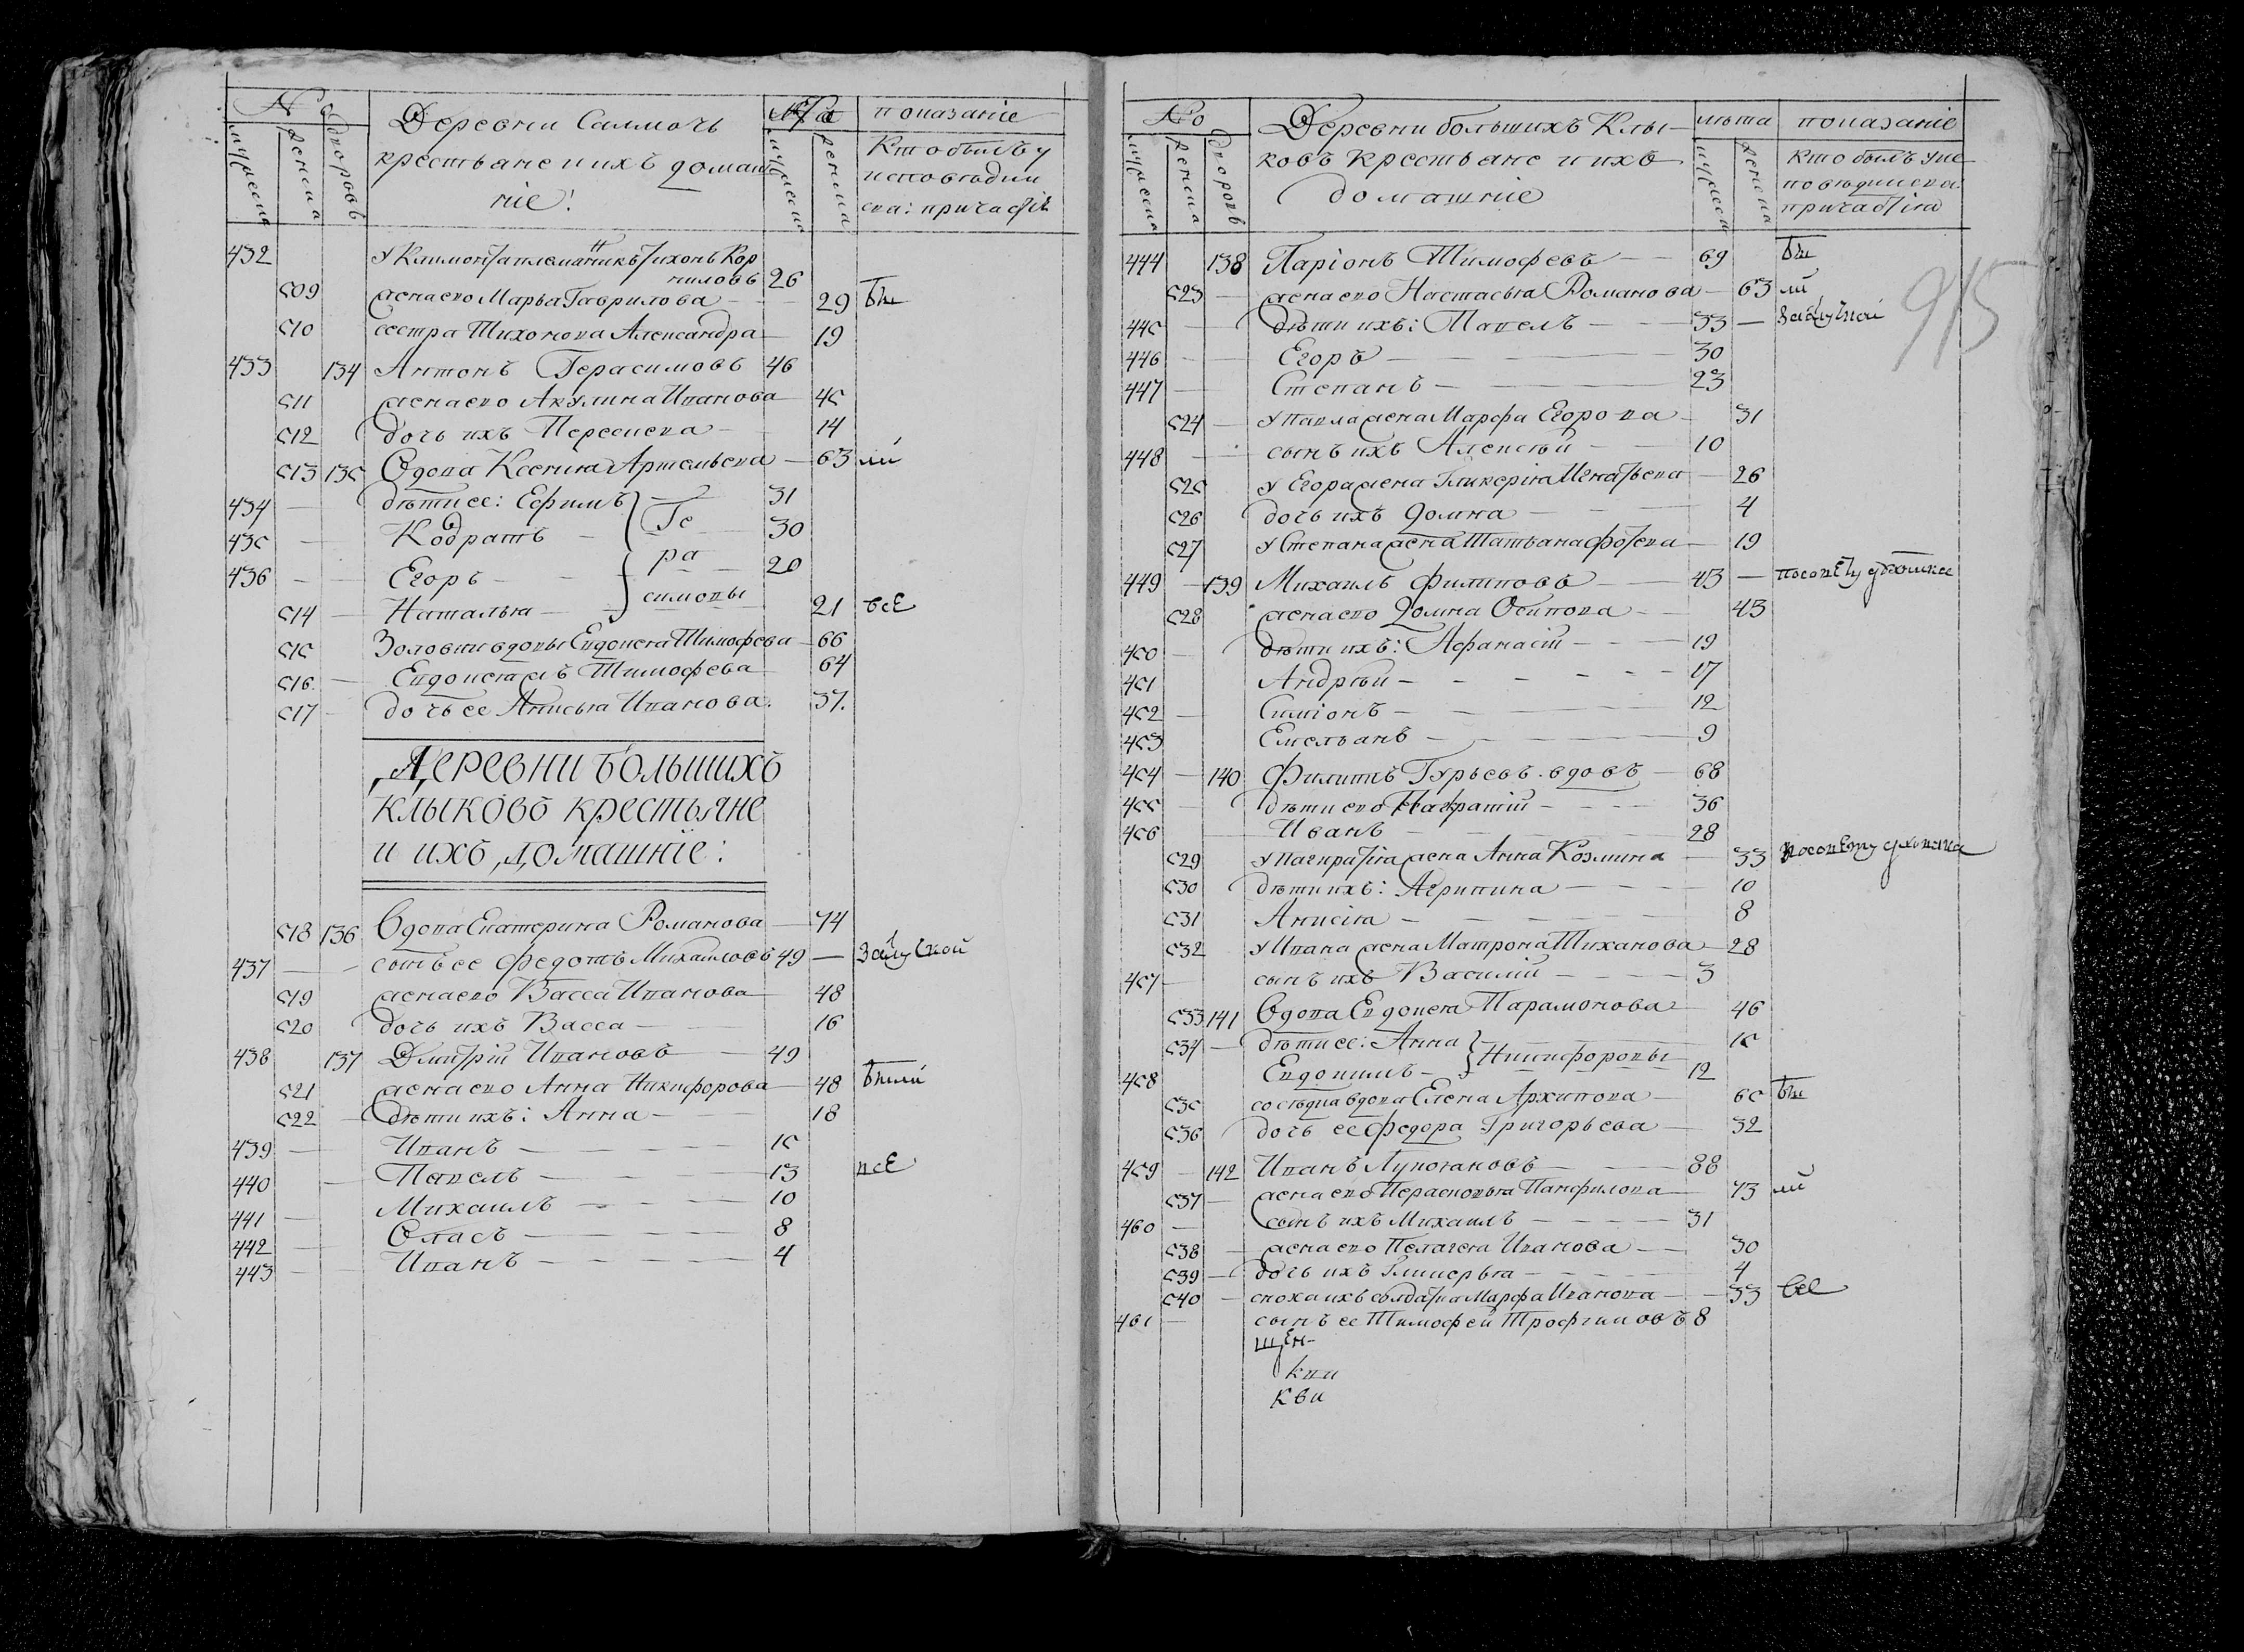 №
мужеска
женска
дворовъ
Деревни Салмочь
крестьане и ихъ домаш
ніе:
лѣта
мужеска
женска
показаніе
Кто былъ у
исповѣди и
св: причастія
432 У Климентa племянникъ Тихонъ Кор
ниловъ 26
509 жена ево Марья Гаврилова 29 бы
510 сестра Тихонова Александра 19
433 134 Антонъ Герасимовъ 46
511 жена ево Акулина Иванова 45
512 дочь ихъ Пересенева 14
513 135 Вдова Ксенія Артемьева 63 ли
434 дѣти ее: Ефимъ Ге 31
435 Кодратъ 30
436 Егоръ ра 20
514 Наталья симовы 21 всЕ
515 Золовки вдовы Евдокея Тимофева 66
516 Евдокея жъ Тимофева 64
517 дочь ее Анисья Иванова. 37.
Деревни большихъ
Клыковъ крестьяне
и ихъ домашніе:
518 136 Вдова Екатерина Романова 74
437 сынъ ее Федотъ Михаиловъ 49
519 жена ево Васса Иванова 48
520 дочь ихъ Васса 16
438 137 Дмитрій Ивановъ 49
521 жена ево Анна Никифорова 48 были
522 дѣти ихъ: Анна 18
439 Иванъ 15
440 Павелъ 13 всЕ
441 Михаилъ 10
442 Власъ 8
443 Иванъ 4
№
мужеска
женска
дворовъ
Деревни большихъ Клы-
ковъ крестьане и ихъ
домашніе
лѣта
мужеска
женска
показаніе
кто былъ у ис
повѣди и св:
причастія
915
444 138 Ларіонъ Тимофевъ 69 бы
523 жена ево Настасья Романова 63 ли
445 дѣти ихъ: Павелъ 33
446 Егоръ 30
447 Степанъ 23
524 У Павла жена Марфа Егорова 31
448 сынъ ихъ Алексѣй 10
525 У Егора жена Гликерія Игнатьева 26
526 дочь ихъ Домна 4
527 У Степана жена Татьана Фотева 19
449 139 Михаилъ Филиповъ 43
528 жена ево Домна Осипова 43
450 дѣти ихъ: Афанасій 19
451 Андрѣй 17
452 Симіонъ 12
453 Емельанъ 9
454 140 Филипъ Гурьевъ вдовъ 68
455 дѣти ево Панкратій 36
456 Иванъ 28
529 У Панкратія жена Анна Козмина 33
530 дѣти ихъ: Агрипина 10
531 Анисія 8
532 У Ивана жена Матрона Тиханова 28
457 сынъ ихъ Василій 3
533 141 Вдова Евдокея Парамонова 46
534 дѣти ее: Анна 15
Никифоровы
458 Евдокимъ 12
535 сосѣдка вдова Елена Архипова 65 бы
536 дочь ее Федора Григорьева 32
459 142 Иванъ Лупогановъ 88
537 жена ево Перасковья Панфилова 73 ли
460 сынъ ихъ Михаилъ 31
538 жена ево Пелагея Иванова 30
539 дочь ихъ Гликерья 4
540 сноха ихъ солдатка Марфа Иванова 33 всЕ
461 сынъ ее Тимофей Трофимовъ 8